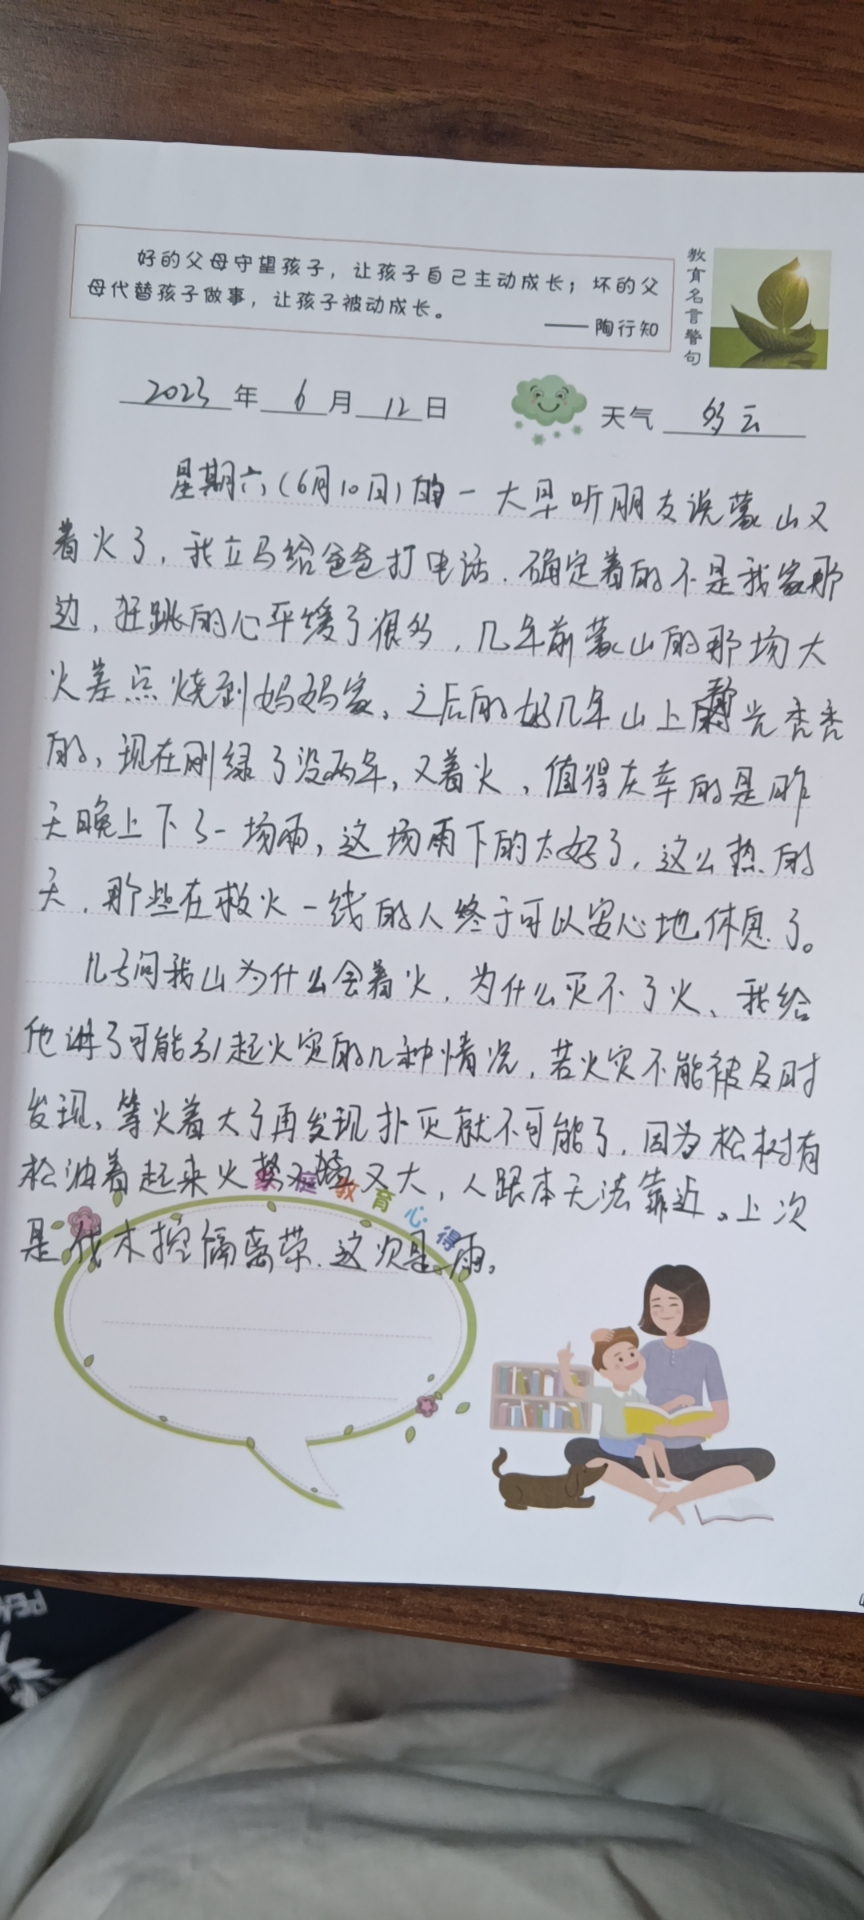 好的父母守望孩子，让孩子自己主动成长；坏的父
母代替孩子做事，让孩子被动成长。
——陶行知
教育名言警句
2023年6月12日
天气 多云
星期六（6月10日）的一大早听朋友说蒙山又
着火了，我立马给爸爸打电话，确定着的不是我家那
边，狂跳的心平缓了很多，几年前蒙山的那场大
火差点烧到妈妈家。之后的好几年山上都光秃秃
的，现在刚绿了没两年，又着火，值得庆幸的是昨
天晚上下了一场雨，这场雨下的太好了，这么热的
天，那些在救火一线的人终于可以安心地休息了。
儿子问我山为什么会着火，为什么灭不了火、我给
他讲了可能引起火灾的几种情况，若火灾不能被及时
发现，等火着大了再发现扑灭就不可能了，因为松树有
松油着起来火势又猛又大，人跟本无法靠近。上次
是伐木挖隔离带，这次是雨。
家庭教育心得
PE